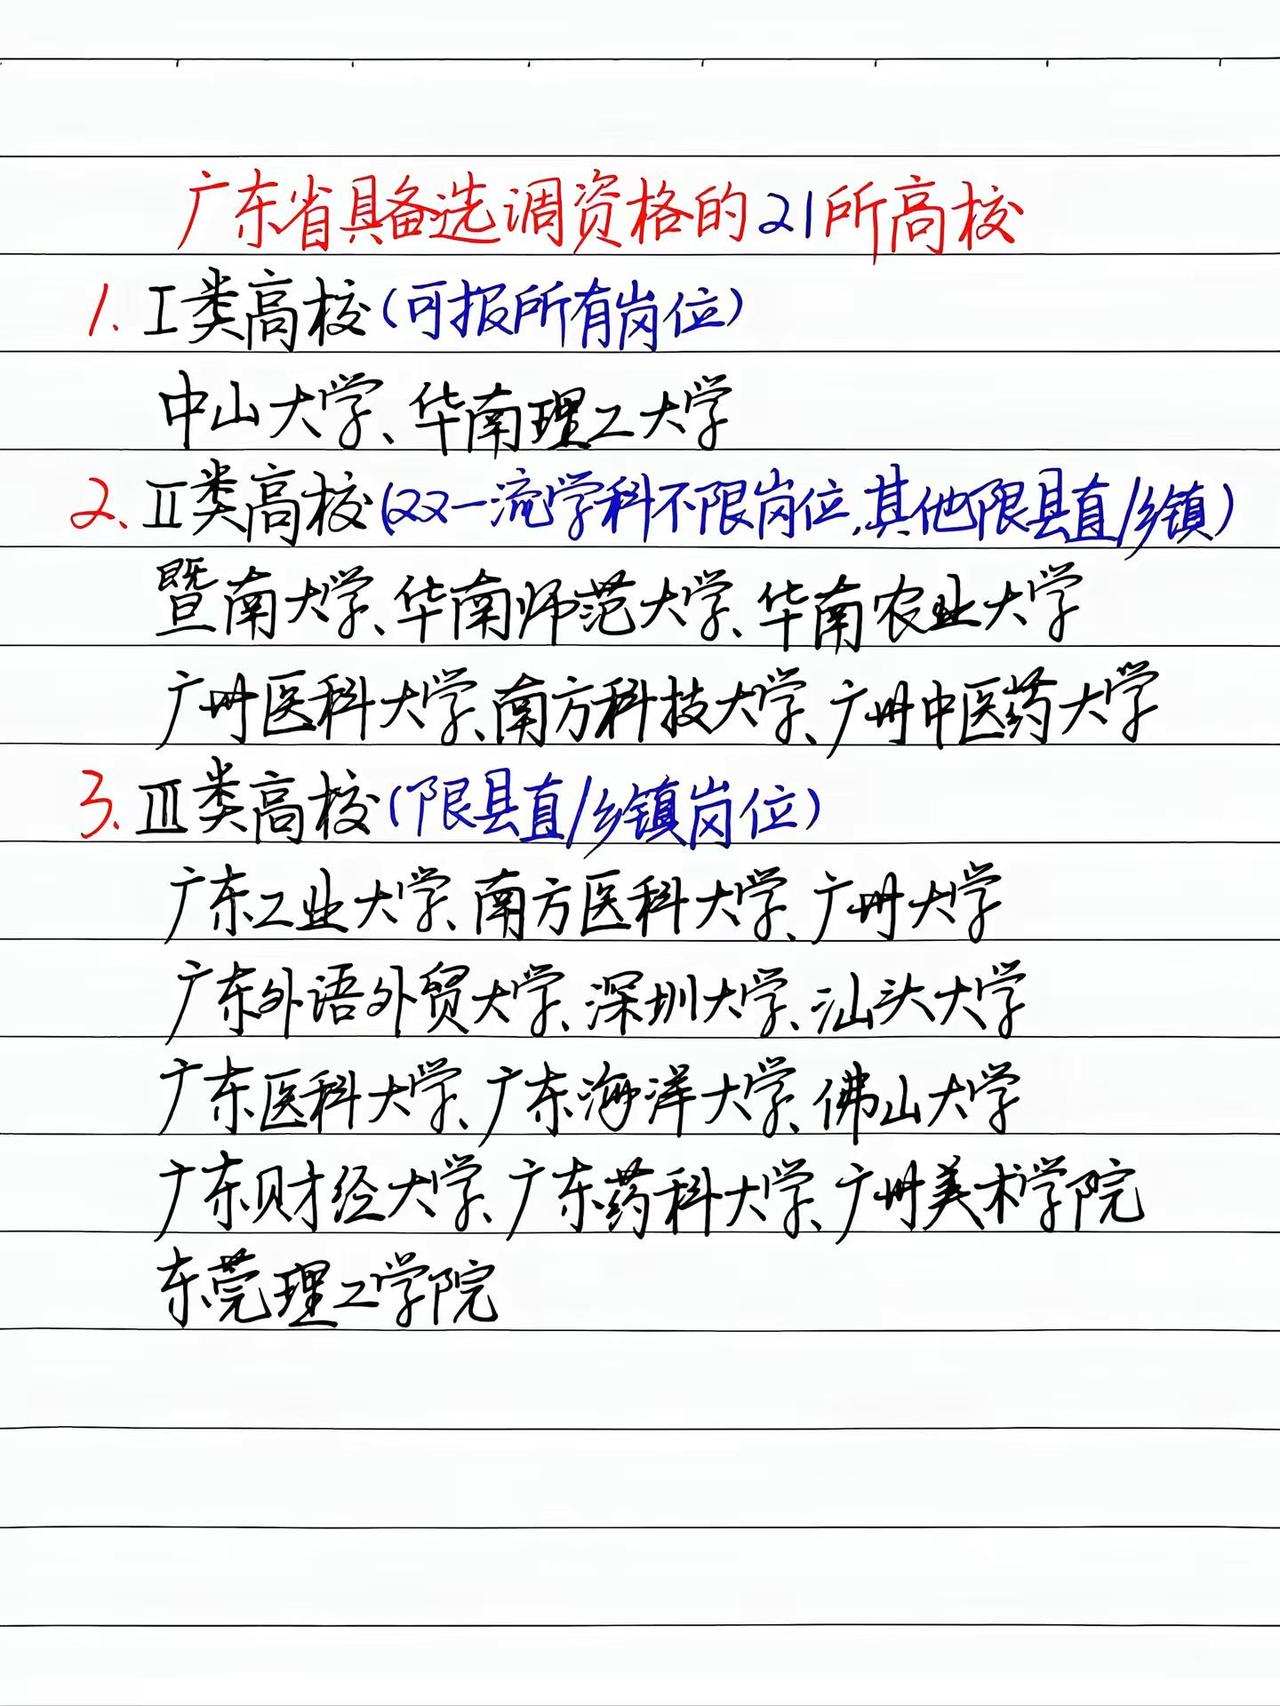 广东省具备选调资格的21所高校
1. Ⅰ类高校(可报所有岗位)
中山大学、华南理工大学
2. Ⅱ类高校(双一流学科不限岗位,其他限县直/乡镇)
暨南大学、华南师范大学、华南农业大学
广州医科大学、南方科技大学、广州中医药大学
3. Ⅲ类高校(限县直/乡镇岗位)
广东工业大学、南方医科大学、广州大学
广东外语外贸大学、深圳大学、汕头大学
广东医科大学、广东海洋大学、佛山大学
广东财经大学、广东药科大学、广州美术学院
东莞理工学院